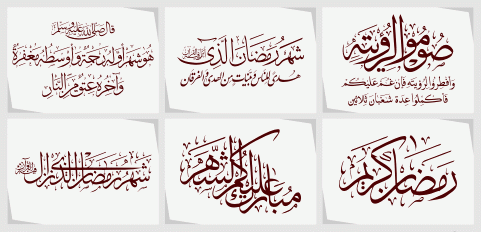 قال صلى الله عليه وسلم
هو شهر أوله رحمة وأوسطه مغفرة
وآخره عتق من النار
شهر رمضان الذي أنزل فيه القرآن
هدى للناس وبينات من الهدى والفرقان
صوموا لرؤيته
وافطروا لرؤيته فإن غم عليكم
فاكملوا عدة شعبان ثلاثين
شهر رمضان الذي أنزل فيه القرآن
مبارك عليكم الشهر
رمضان كريم